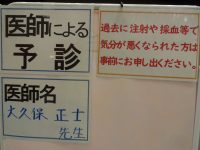 医師による
予診
医師名
大久保 正士
先生
過去に注射や採血等で
気分が悪くなられた方は
事前にお申し出ください。